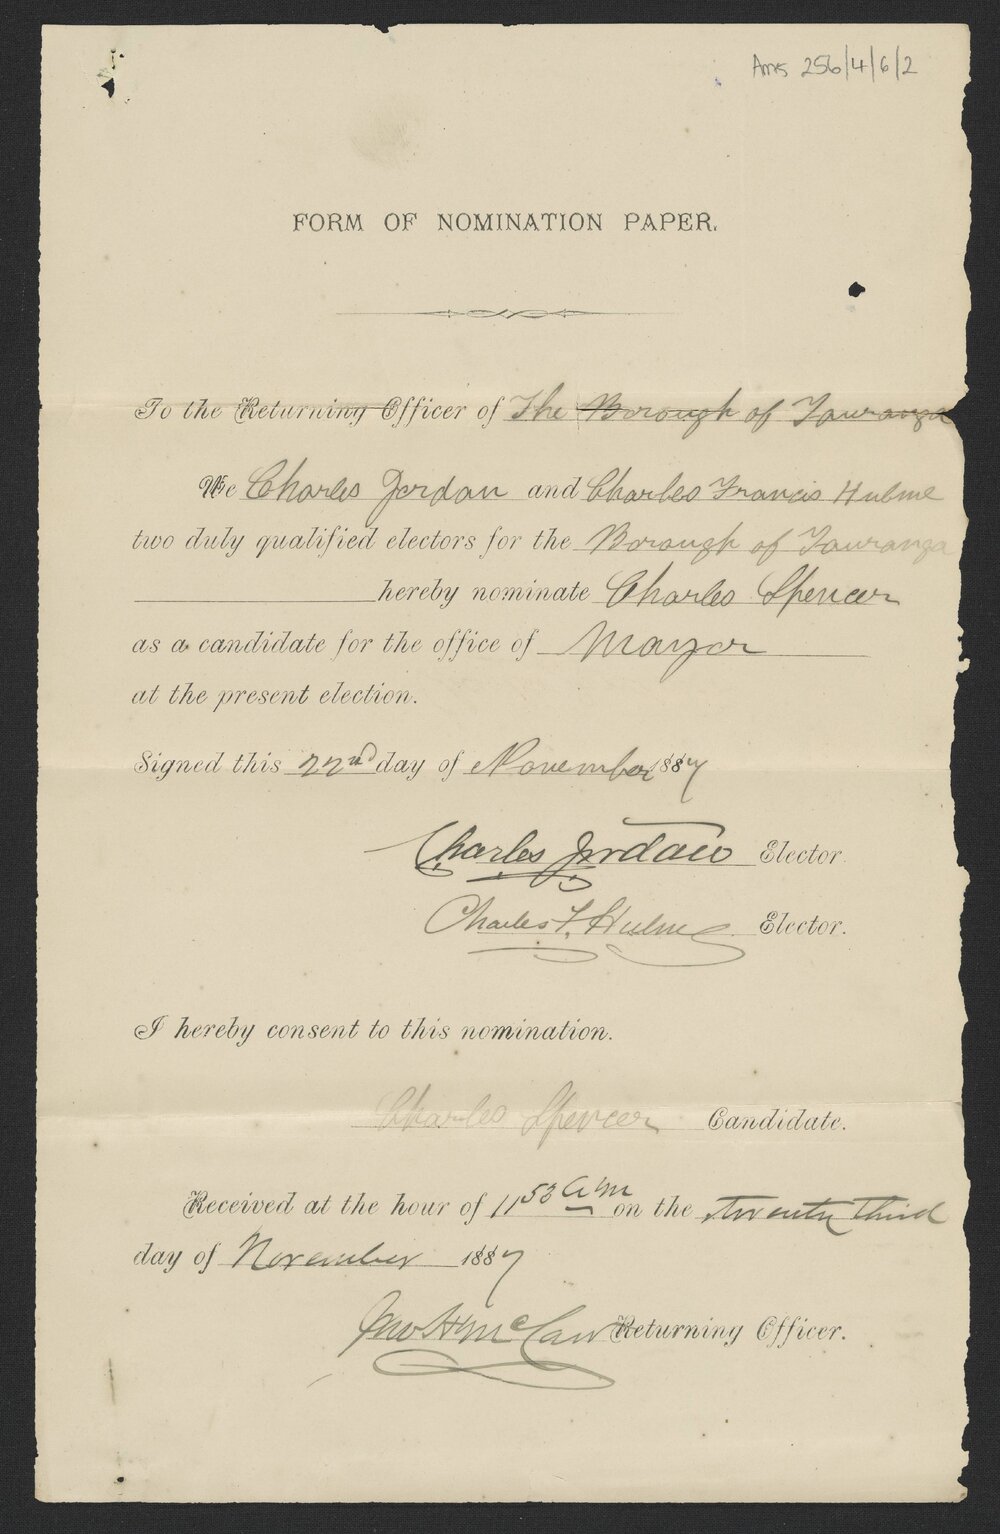 Ams 256/4/6/2
FORM OF NOMINATION PAPER.
To the Returning Officer of The Borough of Tauranga
We Charles Jordan and Charles Francis Hulme
two duly qualified electors for the Borough of Tauranga
hereby nominate Charles Spencer
as a candidate for the office of Mayor
at the present election.
Signed this 22nd day of November 1887
Charles Jordan Elector.
Charles F. Hulme Elector.
I hereby consent to this nomination.
Charles Spencer Candidate.
Received at the hour of 11 53 a.m on the twenty third
day of November 1887
Jno H McCaw Returning Officer.